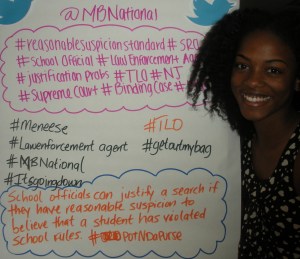 @MBNational
#reasonablesuspicionstandard #SRO
#School Official #Law Enforcement Agent
#justification Probs #TLO #NJ
#Supreme Court #Binding Case #
#Meneese
#Lawenforcement agent
#MBNational
#Itsgoingdown
#ILD
#getoutmybag
School officials can justify a search if
they have reasonable suspicion to
believe that a student has violated
school rules. #PotNDaPurse